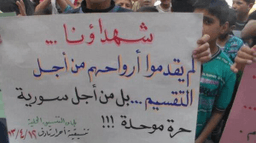 شهداؤنا ...
لم يقدموا أرواحهم من أجل
التقسيم... بل من أجل سورية
حرة موحدة !!!